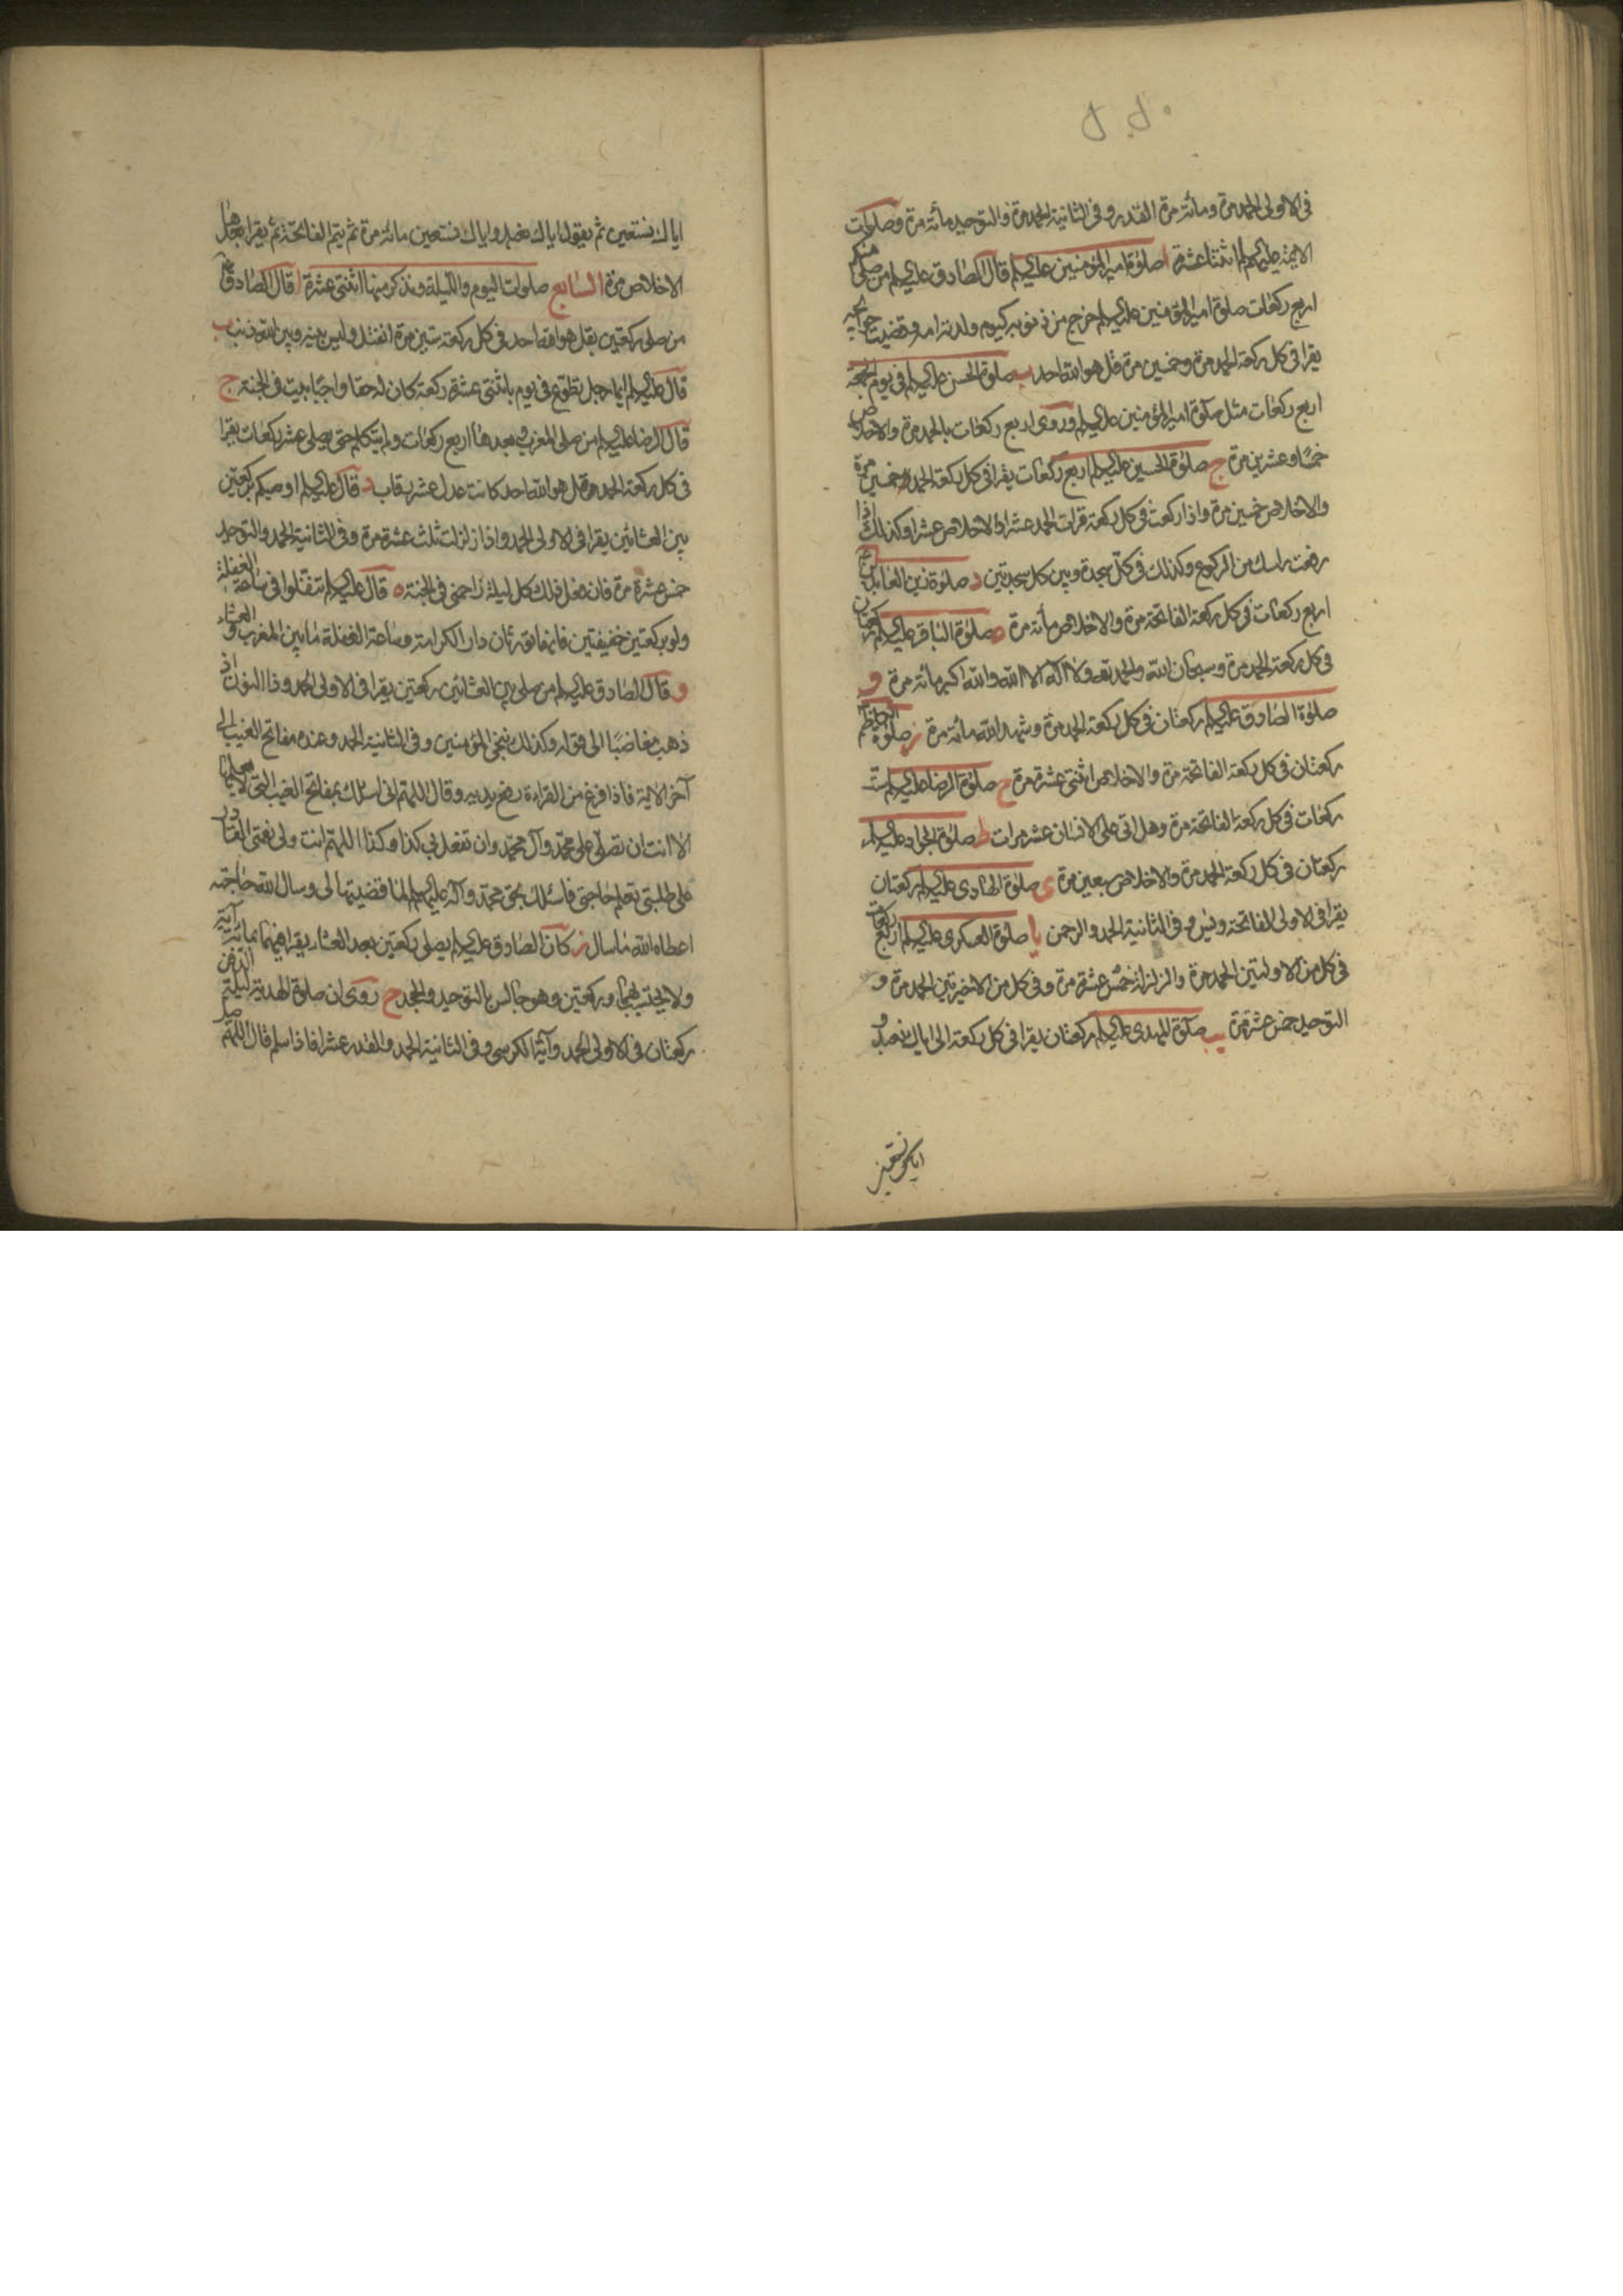 في الاولى الحمد مرة ومائة مرة القدر وفي الثانية الحمد مرة والتوحيد مائة مرة وصلوات
الائمة عليهم السلم اثنتا عشرة ا صلوة امير المؤمنين عليه السلم قال الصادق عليه السلم من صلى منكم
اربع ركعات صلوة امير المؤمنين عليه السلم خرج من ذنوبه كيوم ولدته امه وقضيت حوائجه
يقرا في كل ركعة الحمد مرة وخمسين مرة قل هو الله احد ب صلوة الحسن عليه السلم في يوم الجمعة
اربع ركعات مثل صلوة امير المؤمنين عليه السلم وروى اربع ركعات بالحمد مرة والاخلاص
خمسا وعشرين مرة ج صلوة الحسين عليه السلم اربع ركعات يقرا في كل ركعة الحمد خمسين مرة
والاخلاص خمسين مرة واذا ركعت في كل ركعة قرات الحمد عشرا والاخلاص عشرا وكذلك اذا
رفعت راسك من الركوع وكذلك في كل سجدة وبين كل سجدتين د صلوة زين العابدين
اربع ركعات في كل ركعة الفاتحة مرة والاخلاص مائة مرة ه صلوة الباقر عليه السلم ركعتان
في كل ركعة الحمد مرة وسبحان الله والحمد لله ولا اله الا الله والله اكبر مائة مرة و
صلوة الصادق عليه السلم ركعتان في كل ركعة الحمد مرة وشهد الله مائة مرة ز صلوة الكاظم
ركعتان في كل ركعة الفاتحة مرة والاخلاص اثنتى عشرة مرة ح صلوة الرضا عليه السلم ست
ركعات في كل ركعة الفاتحة مرة وهل اتى على الانسان عشر مرات ط صلوة الجواد عليه السلم
ركعتان في كل ركعة الحمد مرة والاخلاص سبعين مرة ى صلوة الهادى عليه السلم ركعتان
يقرا في الاولى الفاتحة ويس وفي الثانية الحمد والرحمن يا صلوة العسكرى عليه السلم اربع ركعات
في كل من الاولتين الحمد مرة والزلزلة خمس عشرة مرة وفي كل من الاخيرتين الحمد مرة و
التوحيد خمس عشرة مرة يب صلوة المهدى عليه السلم ركعتان يقرا في كل ركعة الى اياك نعبد و
اياك نستعين
اياك نستعين ثم يقول اياك نعبد واياك نستعين مائة مرة ثم يتم الفاتحة ثم يقرا بعدها
الاخلاص مرة السابع صلوات اليوم والليلة ونذكر منها اثنتى عشرة ا قال الصادق
من صلى ركعتين بقل هو الله احد في كل ركعة ستين مرة انفتل وليس بينه وبين الله ذنب ب
قال عليه السلم ايما رجل تطوع في يوم باثنتى عشرة ركعة كان له حقا واجبا بيت في الجنة ج
قال الرضا عليه السلم من صلى المغرب وبعدها اربع ركعات ولم يتكلم حتى يصلى عشر ركعات يقرا
في كل ركعة الحمد وقل هو الله احد كانت عدل عشر رقاب د قال عليه السلم اوصيكم بركعتين
بين العشائين يقرا في الاولى الحمد واذا زلزلت ثلث عشرة مرة وفي الثانية الحمد والتوحيد
خمس عشرة مرة فان فعل ذلك كل ليلة زاحمنى في الجنة ه قال عليه السلم تنفلوا في ساعة الغفلة
ولو بركعتين خفيفتين فانهما تورثان دار الكرامة وساعة الغفلة ما بين المغرب والعشاء
و قال الصادق عليه السلم من صلى بين العشائين ركعتين يقرا في الاولى الحمد وذا النون اذ
ذهب مغاضبا الى قوله وكذلك ننجى المؤمنين وفي الثانية الحمد وعنده مفاتح الغيب الى
آخر الاية فاذا فرغ من القراءة رفع يديه وقال اللهم انى اسئلك بمفاتح الغيب التى لا يعلمها
الا انت ان تصلى على محمد وآل محمد وان تفعل بى كذا وكذا اللهم انت ولى نعمتى القادر
على طلبتى تعلم حاجتى فاسئلك بحق محمد وآله عليهم السلم لما قضيتها لى وسال الله حاجته
اعطاه الله ما سال ز كان الصادق عليه السلم يصلى ركعتين بعد العشاء يقرا فيهما بمائة آية
ولا يحتسب بهما وركعتين وهو جالس بالتوحيد والجحد ح روى ان صلوة الهدية ليلة الدفن
ركعتان في الاولى الحمد وآية الكرسى وفي الثانية الحمد والقدر عشرا فاذا سلم قال اللهم صل